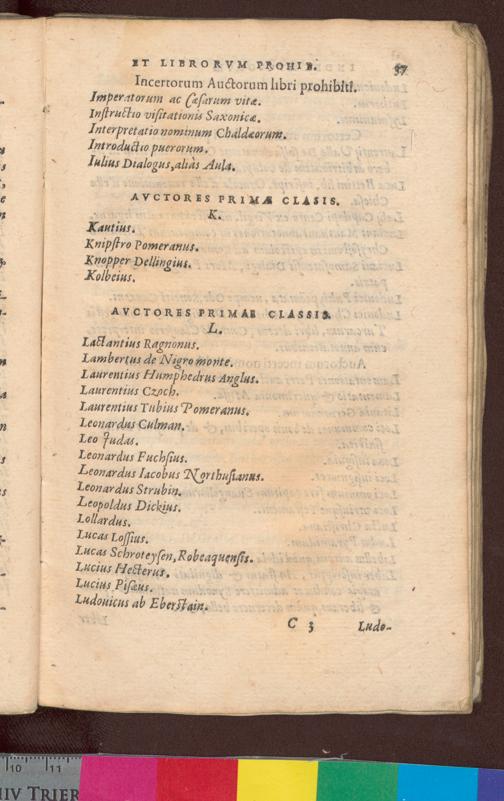 ET LIBRORVM PROHIB. 37
Incertorum Auctorum libri prohibiti.
Imperatorum ac Cæsarum vitæ.
Instructio visitationis Saxonicæ.
Interpretatio nominum Chaldæorum.
Introductio puerorum.
Iulius Dialogus, aliàs Aula.
AVCTORES PRIMÆ CLASIS.
K.
Kautius.
Knipstro Pomeranus.
Knopper Dellingius.
Kolbeius.
AVCTORES PRIMAE CLASSIS.
L.
Lactantius Ragnonus.
Lambertus de Nigro monte.
Laurentius Humphedrus Anglus.
Laurentius Czoch.
Laurentius Tubius Pomeranus.
Leonardus Culman.
Leo Judas.
Leonardus Fuchsius.
Leonardus Iacobus Northusianus.
Leonardus Strubin.
Leopoldus Dickius.
Lollardus.
Lucas Lossius.
Lucas Schroteysen, Robeaquensis.
Lucius Hecterus.
Lucius Pisæus.
Ludouicus ab Eberstain.
C 3 Ludo-
10 11
IV TRIER